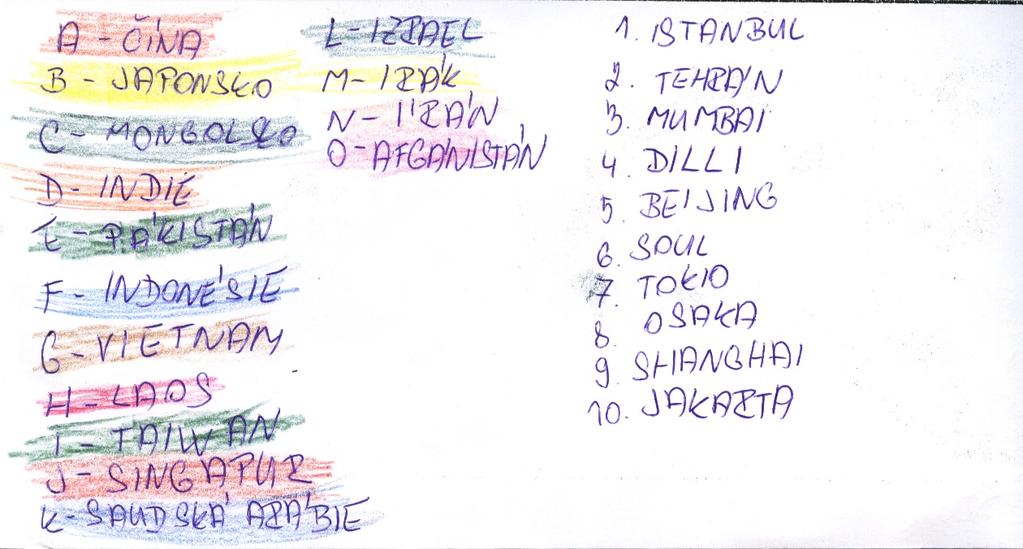 A - ČÍNA
B - JAPONSKO
C - MONGOLSKO
D - INDIE
E - PÁKISTÁN
F - INDONÉSIE
G - VIETNAM
H - LAOS
I - TAIWAN
J - SINGAPUR
K - SAUDSKÁ ARÁBIE
L - IZRAEL
M - IRÁK
N - ÍRÁN
O - AFGÁNISTÁN
1. ISTANBUL
2. TEHRÁN
3. MUMBAI
4. DILLI
5. BEIJING
6. SOUL
7. TOKIO
8. OSAKA
9. SHANGHAI
10. JAKARTA